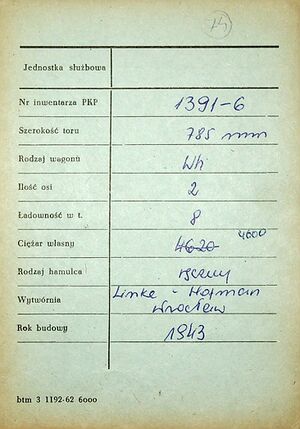 14
Jednostka służbowa
Nr inwentarza PKP 1391-6
Szerokość toru 785 mm
Rodzaj wagonu Wh
Ilość osi 2
Ładowność w t. 8
Ciężar własny 4620 4600
Rodzaj hamulca ręczny
Wytwórnia Linke - Hofman
Wrocław
Rok budowy 1943
btm 3 1192-62 6000